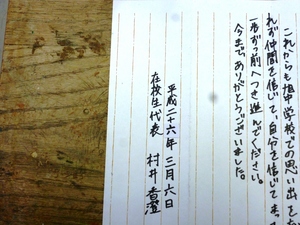 これからも旭中学校での思い出を
れず仲間を信じて、自分を信じて、ま
一歩ずつ前へつき進んでください。
今まで、ありがとうございました。
平成二十六年 三月六日
在校生代表 村井香澄